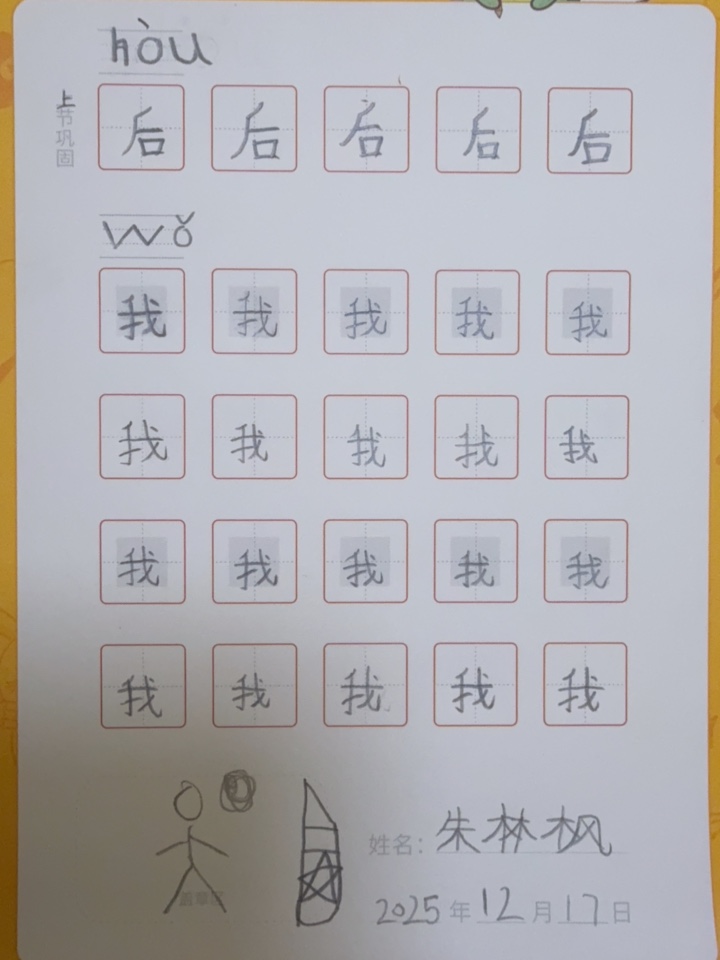 hòu
上节巩固
后 后 后 后 后
wǒ
我 我 我 我 我
我 我 我 我 我
我 我 我 我 我
我 我 我 我 我
盖章区
姓名：朱林枫
2025年12月17日